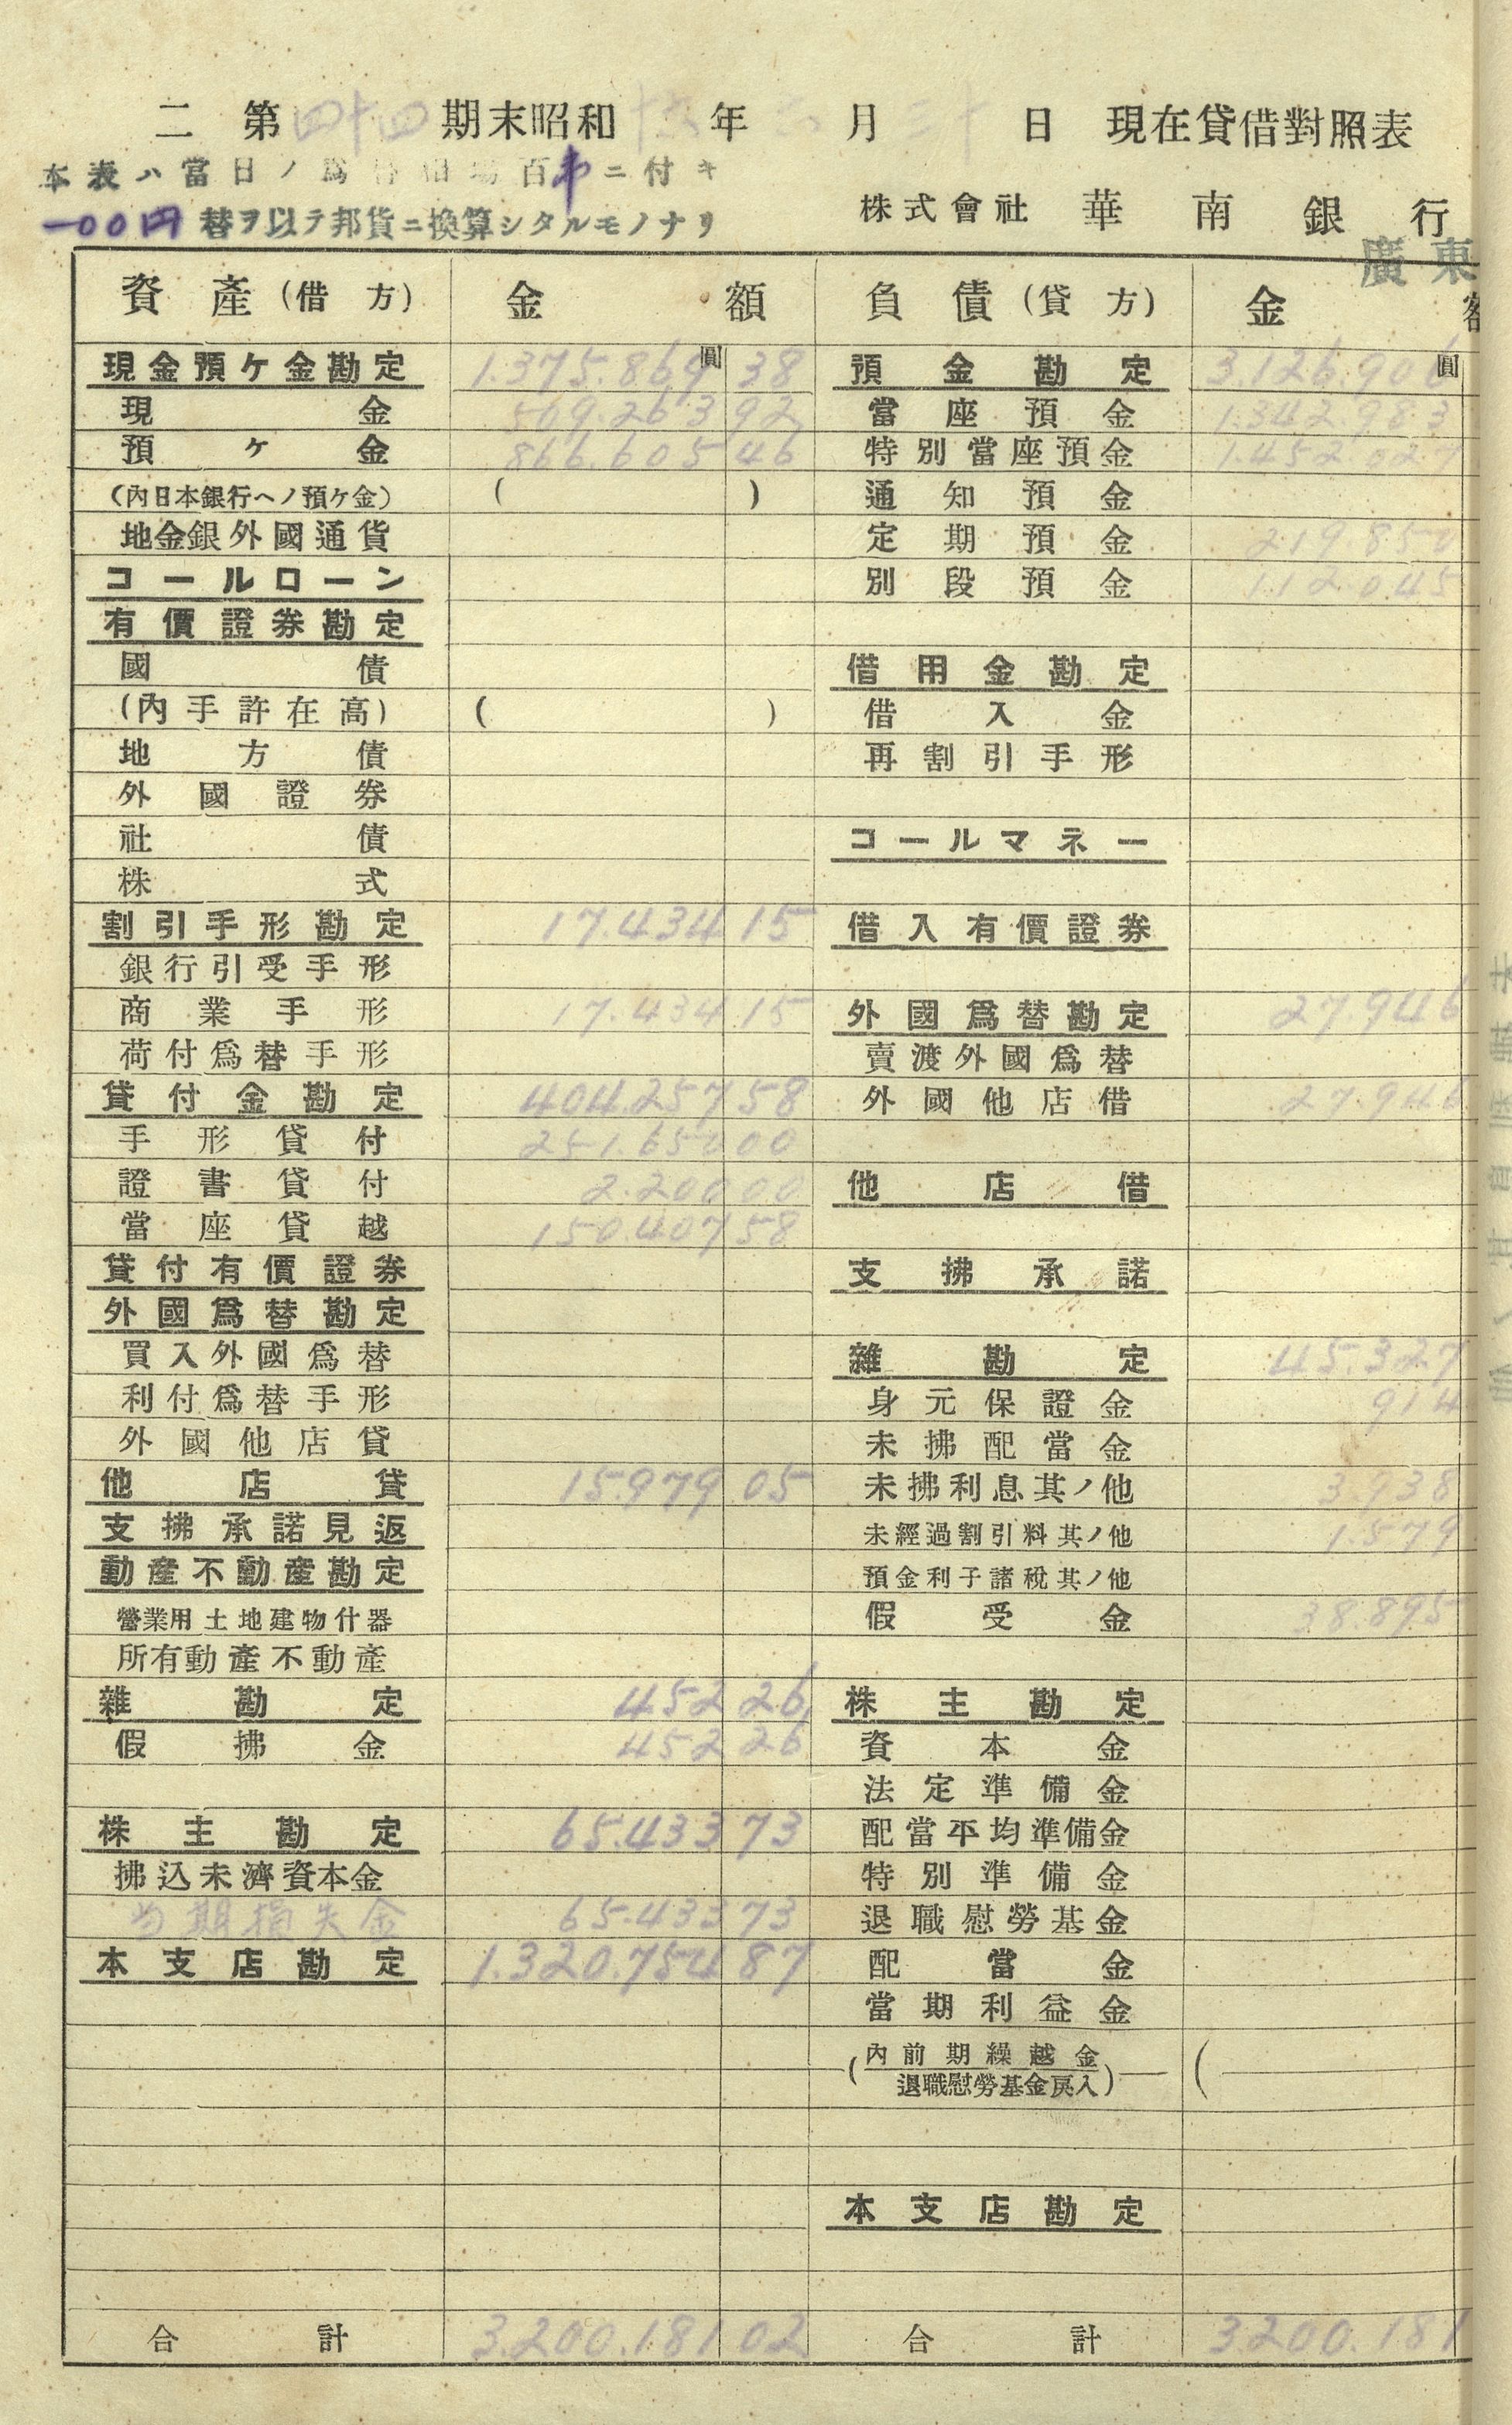 二 第四十四期末昭和十六年六月三十日 現在貸借對照表
本表ハ當日ノ爲替相場百弗ニ付キ
一00円替ヲ以テ邦貨ニ換算シタルモノナリ
株式會社 華南銀行
廣東
資産(借方) 金額 負債(貸方) 金額
現金預ケ金勘定 1.375.869圓38 預金勘定 3.126.906圓
現金 509.263 92 當座預金 1.342.983
預ケ金 866.605 46 特別當座預金 1.452.027
(內日本銀行ヘノ預ケ金) ( ) 通知預金
地金銀外國通貨 定期預金 219.850
コールローン 別段預金 112.045
有價證券勘定
國債 借用金勘定
(內手許在高) ( ) 借入金
地方債 再割引手形
外國證券
社債 コールマネー
株式
割引手形勘定 17.434 15 借入有價證券
銀行引受手形
商業手形 17.434 15 外國爲替勘定 27.946
荷付爲替手形 賣渡外國爲替
貸付金勘定 404.257 58 外國他店借 27.946
手形貸付 251.650 00
證書貸付 2.200 00 他店借
當座貸越 150.407 58
貸付有價證券 支拂承諾
外國爲替勘定
買入外國爲替 雜勘定 45.327
利付爲替手形 身元保證金 914
外國他店貸 未拂配當金
他店貸 15.979 05 未拂利息其ノ他 3.938
支拂承諾見返 未經過割引料其ノ他 1.579
動産不動産勘定 預金利子諸稅其ノ他
營業用土地建物什器 假受金 38.895
所有動產不動產
雜勘定 452 26 株主勘定
假拂金 452 26 資本金
法定準備金
株主勘定 65.433 73 配當平均準備金
拂込未濟資本金 特別準備金
当期損失金 65.433 73 退職慰勞基金
本支店勘定 1.320.754 87 配當金
當期利益金
(內前期繰越金 (
退職慰勞基金戾入)
本支店勘定
合計 3.200.181 02 合計 3200.181